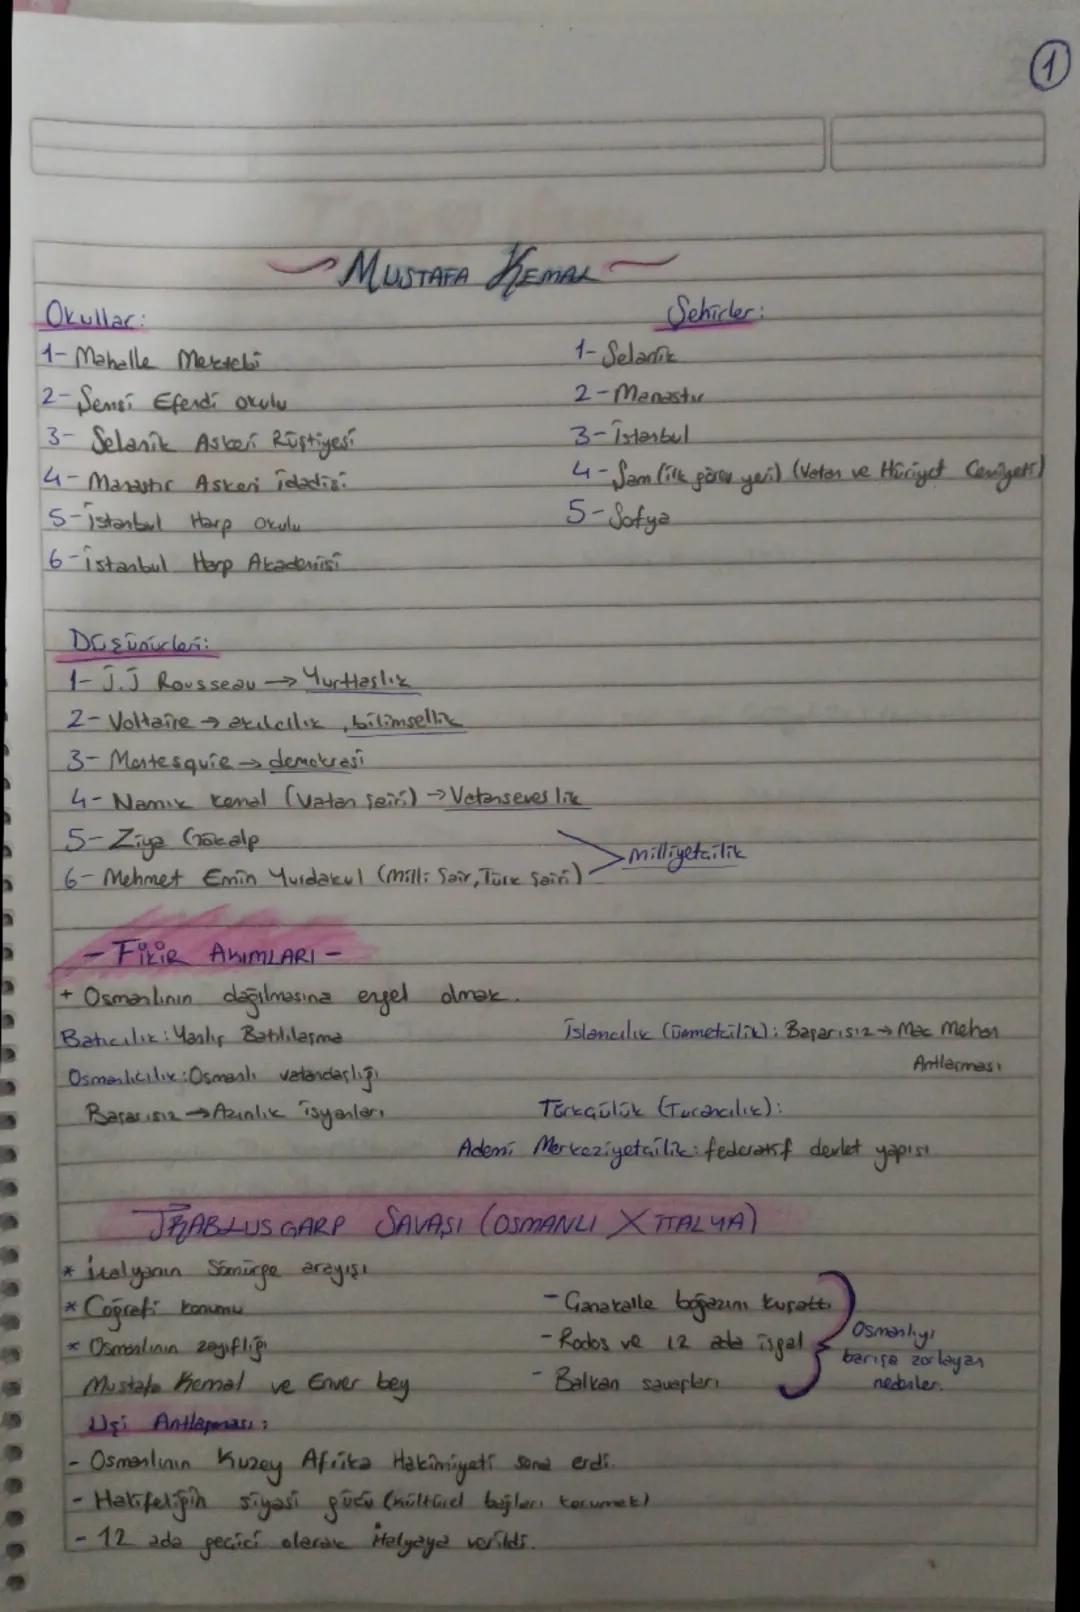 1
MUSTAFA KEMAL
Okullar:
1- Mahalle Mektebi
2- Şemsi Efendi okulu
3- Selanik Askeri Rüştiyesi
4- Manastır Askeri idadisi
5- istanbul Harp Okulu
6- istanbul Harp Akademisi
Şehirler:
1- Selanik
2- Manastır
3- istanbul
4- Şam (ilk görev yeri) (Vatan ve Hüriyet Cemiyeti)
5- Sofya
Düşünürleri:
1- J.J Rousseau → Yurttaşlık
2- Voltaire → akılcılık, bilimsellik
3- Montesquie → demokrasi
4- Namık Kemal (Vatan şairi) → Vatanseverlik
5- Ziya Gökalp
6- Mehmet Emin Yurdakul (Milli Şair, Türk Şairi)
milliyetçilik
- FİKİR AKIMLARI -
+ Osmanlının dağılmasına engel olmak.
Batıcılık: Yanlış Batılılaşma
İslamcılık (ümmetçilik): Başarısız → Mac Mehon
Antlaşması
Osmanlıcılık: Osmanlı vatandaşlığı
Başarısız → Azınlık isyanları
Türkçülük (Turancılık):
Ademi Merkeziyetçilik: federatif devlet yapısı
TRABLUSGARP SAVAŞI (OSMANLI X İTALYA)
* italyanın Sömürge arayışı
* Coğrafi konumu
* Osmanlının zayıflığı
Mustafa Kemal ve Enver bey
- Çanakalle boğazını kuşattı
- Rodos ve 12 ada işgal
- Balkan savaşları
Osmanlıyı
barışa zorlayan
nedenler.
Uşi Antlaşması:
- Osmanlının Kuzey Afrika Hakimiyeti sona erdi.
- Halifeliğin siyasi gücü (kültürel bağları korumak)
- 12 ada geçici olarak italyaya verildi.